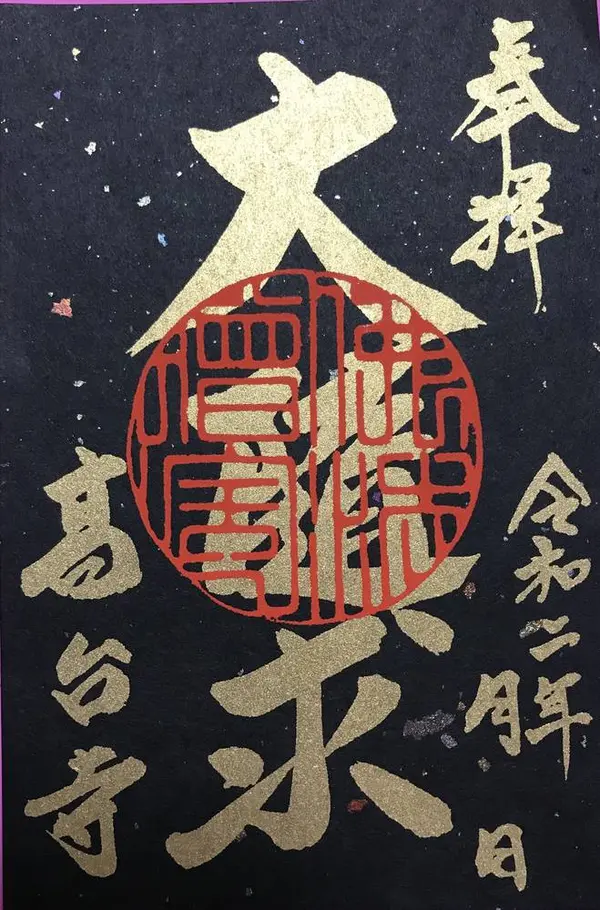 奉拝
令和二年 月 日
大随求
佛法僧寶
高台寺